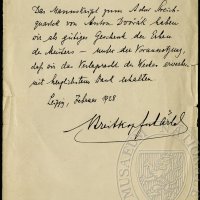 Das Manuskript zum Adur Streich-
quartett von Anton Dvořák haben
wir als gütiges Geschenk der Erben
des Meisters – unter der Voraussetzung,
daß wir das Verlagsrecht des Werkes erwerben –
mit herzlichstem Dank erhalten.
Leipzig, Februar 1928
Breitkopf & Härtel